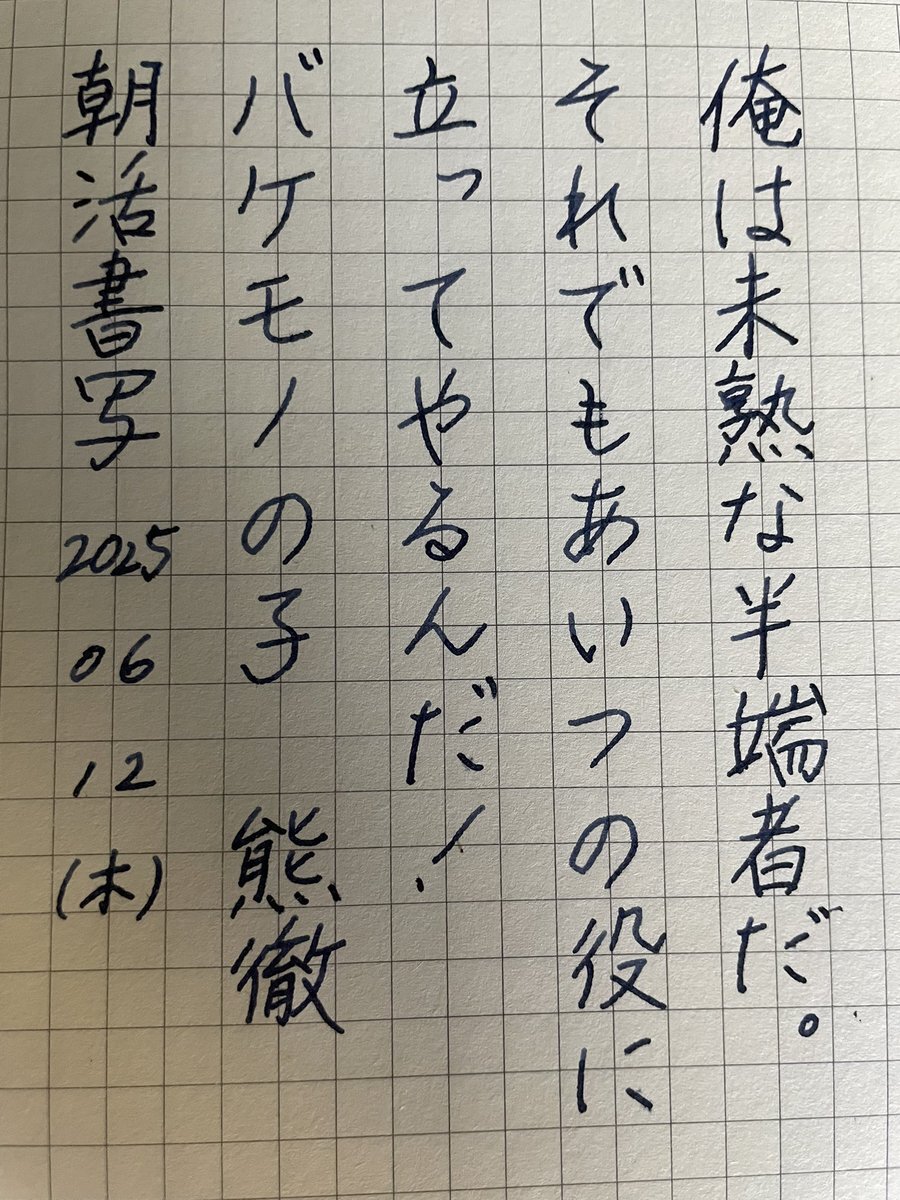 俺は未熟な半端者だ。
それでもあいつの役に
立ってやるんだ！
バケモノの子 熊徹
朝活書写 2025 06 12 (木)